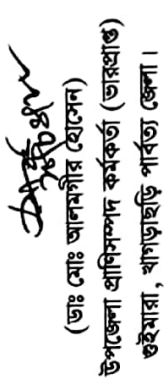 (ডাঃ মোঃ আলমগীর হোসেন)
উপজেলা প্রাণিসম্পদ কর্মকর্তা (ভারপ্রাপ্ত)
গুইমারা, খাগড়াছড়ি পার্বত্য জেলা।